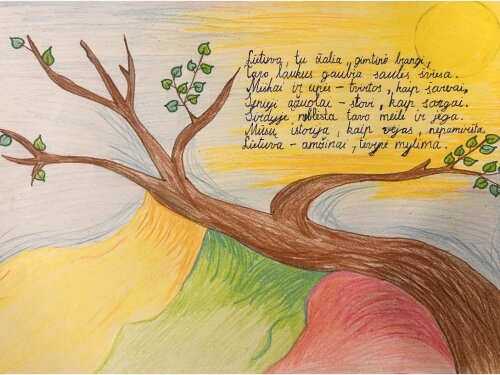 Lietuva, tu žalia, gimtinė brangi,
Tavo laukus gaubia saulės šviesa.
Miškai ir upės – tvirtos, kaip šarvai,
Senieji ąžuolai – stovi, kaip sargai.
Širdyje neblėsta tavo meilė ir jėga.
Mūsų istorija, kaip vėjas, nepamiršta.
Lietuva – amžinai, tėvynė mylima.